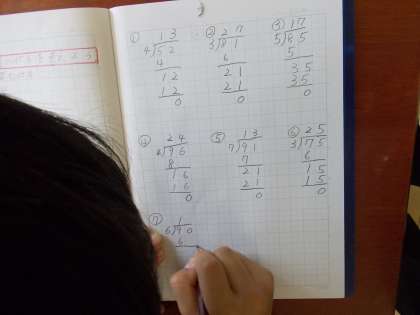 ① 13
4)52
4
12
12
0
② 27
3)81
6
21
21
0
③ 17
5)85
5
35
35
0
④ 24
4)96
8
16
16
0
⑤ 13
7)91
7
21
21
0
⑥ 25
3)75
6
15
15
0
⑦ 1
6)90
6